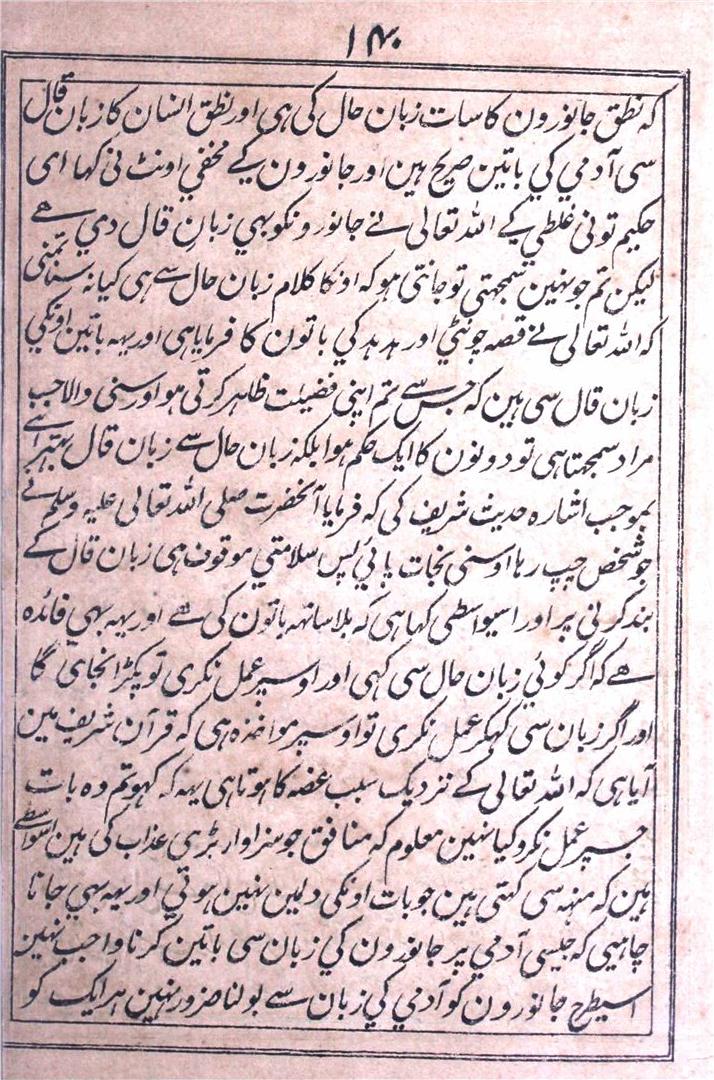 ۱۴۰
که نطق جانورون کا سات زبان حال کی هی اور نطق انسان کا زبان قال
سی آدمي کي باتین صریح هین اور جانورون کے مخفي اونٹ نی کہا ای
حکیم تونی غلطي کے الله تعالی نے جانورونکو بهي زبانِ قال دي هے
لیکن تم جو نہین سمجهتي تو جانتي هو که اونکا کلام زبان حال سے هی کیا نه سنا تمنی
که الله تعالی نے قصه چونٹي اور هدهد کي باتون کا فرمایا هی اور یهه باتین اونکي
زبان قال سی هین که جس سے تم اپنی فضیلت ظاهر کرتی هو اور سنی والا جب
مراد سمجهتا هی تو دونون کا ایک حکم هوا بلکه زبان حال سے زبان قال بہتر هے
بموجب اشاره حدیث شریف کی که فرمایا آنحضرت صلی الله تعالی علیه وسلم نے
جو شخص چپ رها اوسنی نجات پائي پس سلامتي موقوف هی زبان قال کے
بند کرنی پر اور اسیواسطی کہا هی که بلا ساتهه باتون کی هے اور یهه بهي فائده
هے که اگر کوئي زبان حال سی کہی اور اوسپر عمل نکری تو پکڑا نجای گا
اور اگر زبان سی کہکر عمل نکری تو اوسپر مواخذه هی که قرآن شریف مین
آیا هی که الله تعالی کے نزدیک سبب غصه کا هوتا هی یهه که کہو تم وه بات
جسپر عمل نکرو کیا نہین معلوم که منافق جو سزاوار بڑی عذاب کی هین اسواسطے
هین که منهه سی کہتی هین جو بات اونکی دلمین نہین هوتي اور یهه بهي جانا
چاهیی که جیسی آدمي پر جانورون کي زبان سی باتین کرنا واجب نہین
اسیطرح جانورون کو آدمي کي زبان سے بولنا ضرور نہین هر ایک کو